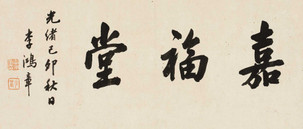 嘉福堂
光緒己卯秋日
李鴻章